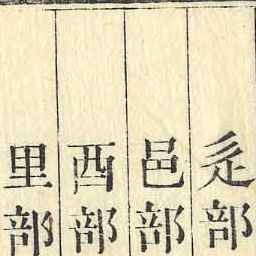 辵部
邑部
酉部
里部